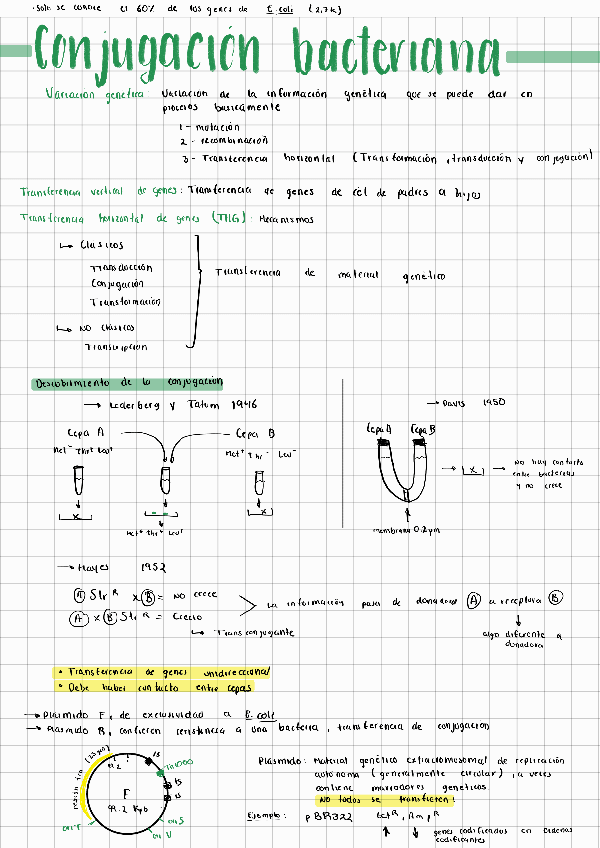 · Solo se conoce el 60% de los genes de E. coli (2,7k)
Conjugación bacteriana
Variación genética: Variación de la información genética que se puede dar en
procesos basicamente
1 - mutación
2 - recombinación
3 - Transferencia horizontal (Transformación, transducción y conjugación)
Transferencia vertical de genes: Transferencia de genes de cel de padres a hijos
Transferencia horizontal de genes (THG): Mecanismos
↳ Clasicos
Transducción
Conjugación
Transformación
↳ NO clasicos
Transcripción
Transferencia de material genetico
Descubrimiento de la conjugación
→ Lederberg y Tatum 1946
Cepa A
Met⁻ Thr⁺ Leu⁺
Cepa B
Met⁺ Thr⁻ Leu⁻
x
x
Met⁺ Thr⁺ Leu⁺
→ Davis 1950
Cepa A Cepa B
membrana 0.2 μm
→ x →
No hay contacto
entre bacterias
y no crece
→ Hayes 1952
A Str R x B = NO crece
A x B Str R = Crecio
↳ Transconjugante
La información pasa de donadora A a receptora B
algo diferente a
donadora
• Transferencia de genes unidireccional
• Debe haber contacto entre cepas
→ Plasmido F, de exclusividad a E. coli
→ Plasmido R, confieren resistencia a una bacteria, transferencia de conjugación
F
99.2 Kpb
IS
Tn1000
IS
IS
Ori S
Ori V
Ori T
Plasmido: Material genético extracromosomal de replicación
autonoma (generalmente circular), a veces
contiene marcadores geneticos.
NO todos se transfieren!
Ejemplo: pBR322 tet R, Amp R
↑ ↓ genes codificados en cadenas
codificantes